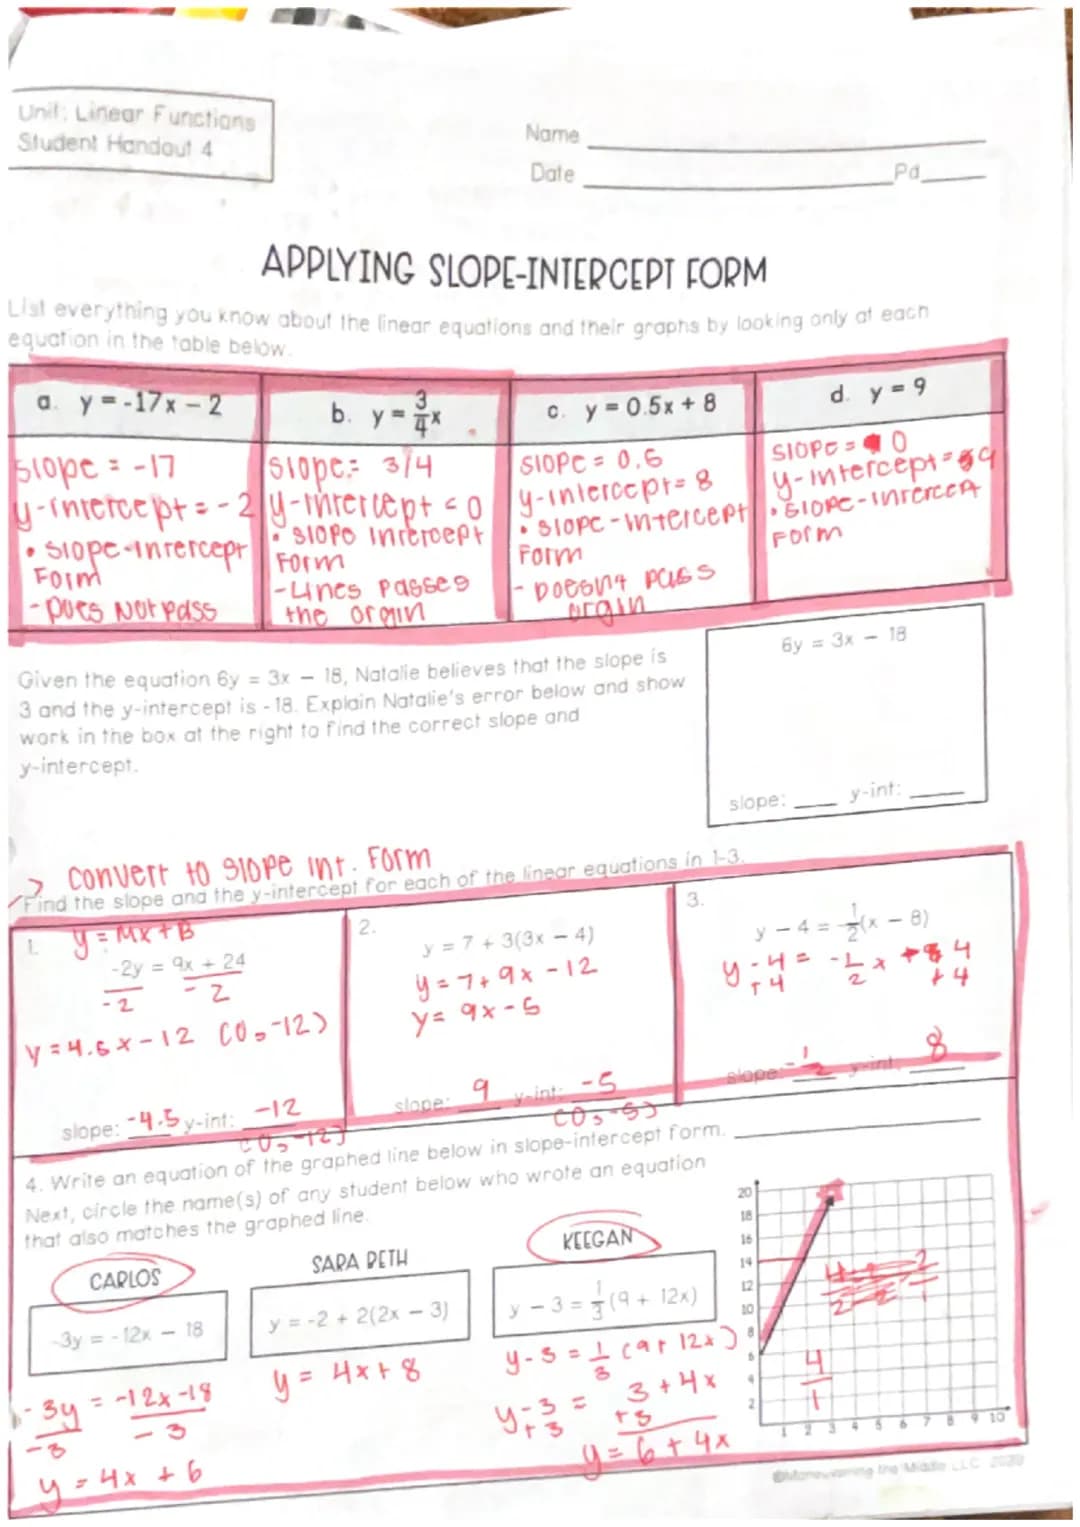 Unit: Linear Functions
Student Handout 4
Name
Date
Pd
APPLYING SLOPE-INTERCEPT FORM
List everything you know about the linear equations and their graphs by looking only at each
equation in the table below.
a. y = -17x - 2
slope = -17
y-intercept = -2
• slope-intercept
Form
- Does Not pass
b. y = 3/4 x
slope = 3/4
y-intercept = 0
• slope intercept
Form
- Lines passes
the orgin
c. y = 0.5x + 8
slope = 0.5
y-intercept = 8
• slope-intercept
Form
- Doesn't pass
orgin
d. y = 9
slope = 0
y-intercept = 9
• slope-intercept
Form
Given the equation 6y = 3x - 18, Natalie believes that the slope is
3 and the y-intercept is -18. Explain Natalie's error below and show
work in the box at the right to find the correct slope and
y-intercept.
6y = 3x - 18
slope: ____ y-int: ____
→ convert to slope int. Form
Find the slope and the y-intercept for each of the linear equations in 1-3.
1.
y = Mx + B
-2y = 9x + 24
-2 -2
y = 4.5x - 12 (0, -12)
slope: -4.5 y-int: -12
(0, -12)
2.
y = 7 + 3(3x - 4)
y = 7 + 9x - 12
y = 9x - 5
slope: 9 y-int: -5
(0, -5)
3.
y - 4 = -1/2(x - 8)
y - 4 = -1/2 x + 4
+4 +4
slope: -1/2 y-int: 8
4. Write an equation of the graphed line below in slope-intercept form.
Next, circle the name(s) of any student below who wrote an equation
that also matches the graphed line.
CARLOS
-3y = -12x - 18
-3y = -12x - 18
-3 -3
y = 4x + 6
SARA BETH
y = -2 + 2(2x - 3)
y = 4x + 8
KEEGAN
y - 3 = 1/3(9 + 12x)
y - 3 = 1/3 (9 + 12x)
y - 3 = 3 + 4x
+3 +3
y = 6 + 4x
20
18
16
14
12
10
8
6
4
2
4/1
1 2 3 4 5 6 7 8 9 10
©Maneuvering the Middle LLC, 2020